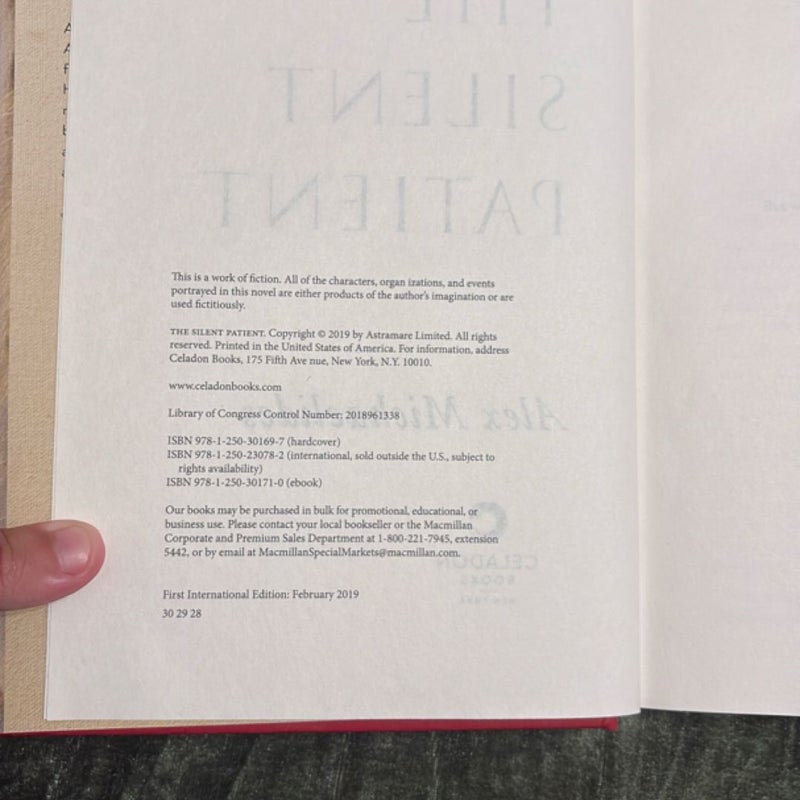 THE
SILENT
PATIENT
This is a work of fiction. All of the characters, organ izations, and events
portrayed in this novel are either products of the author's imagination or are
used fictitiously.
THE SILENT PATIENT. Copyright © 2019 by Astramare Limited. All rights
reserved. Printed in the United States of America. For information, address
Celadon Books, 175 Fifth Ave nue, New York, N.Y. 10010.
www.celadonbooks.com
Library of Congress Control Number: 2018961338
ISBN 978-1-250-30169-7 (hardcover)
ISBN 978-1-250-23078-2 (international, sold outside the U.S., subject to
rights availability)
ISBN 978-1-250-30171-0 (ebook)
Alex Michaelides
Our books may be purchased in bulk for promotional, educational, or
business use. Please contact your local bookseller or the Macmillan
Corporate and Premium Sales Department at 1-800-221-7945, extension
5442, or by email at MacmillanSpecialMarkets@macmillan.com.
CELADON
BOOKS
NEW YORK
First International Edition: February 2019
30 29 28